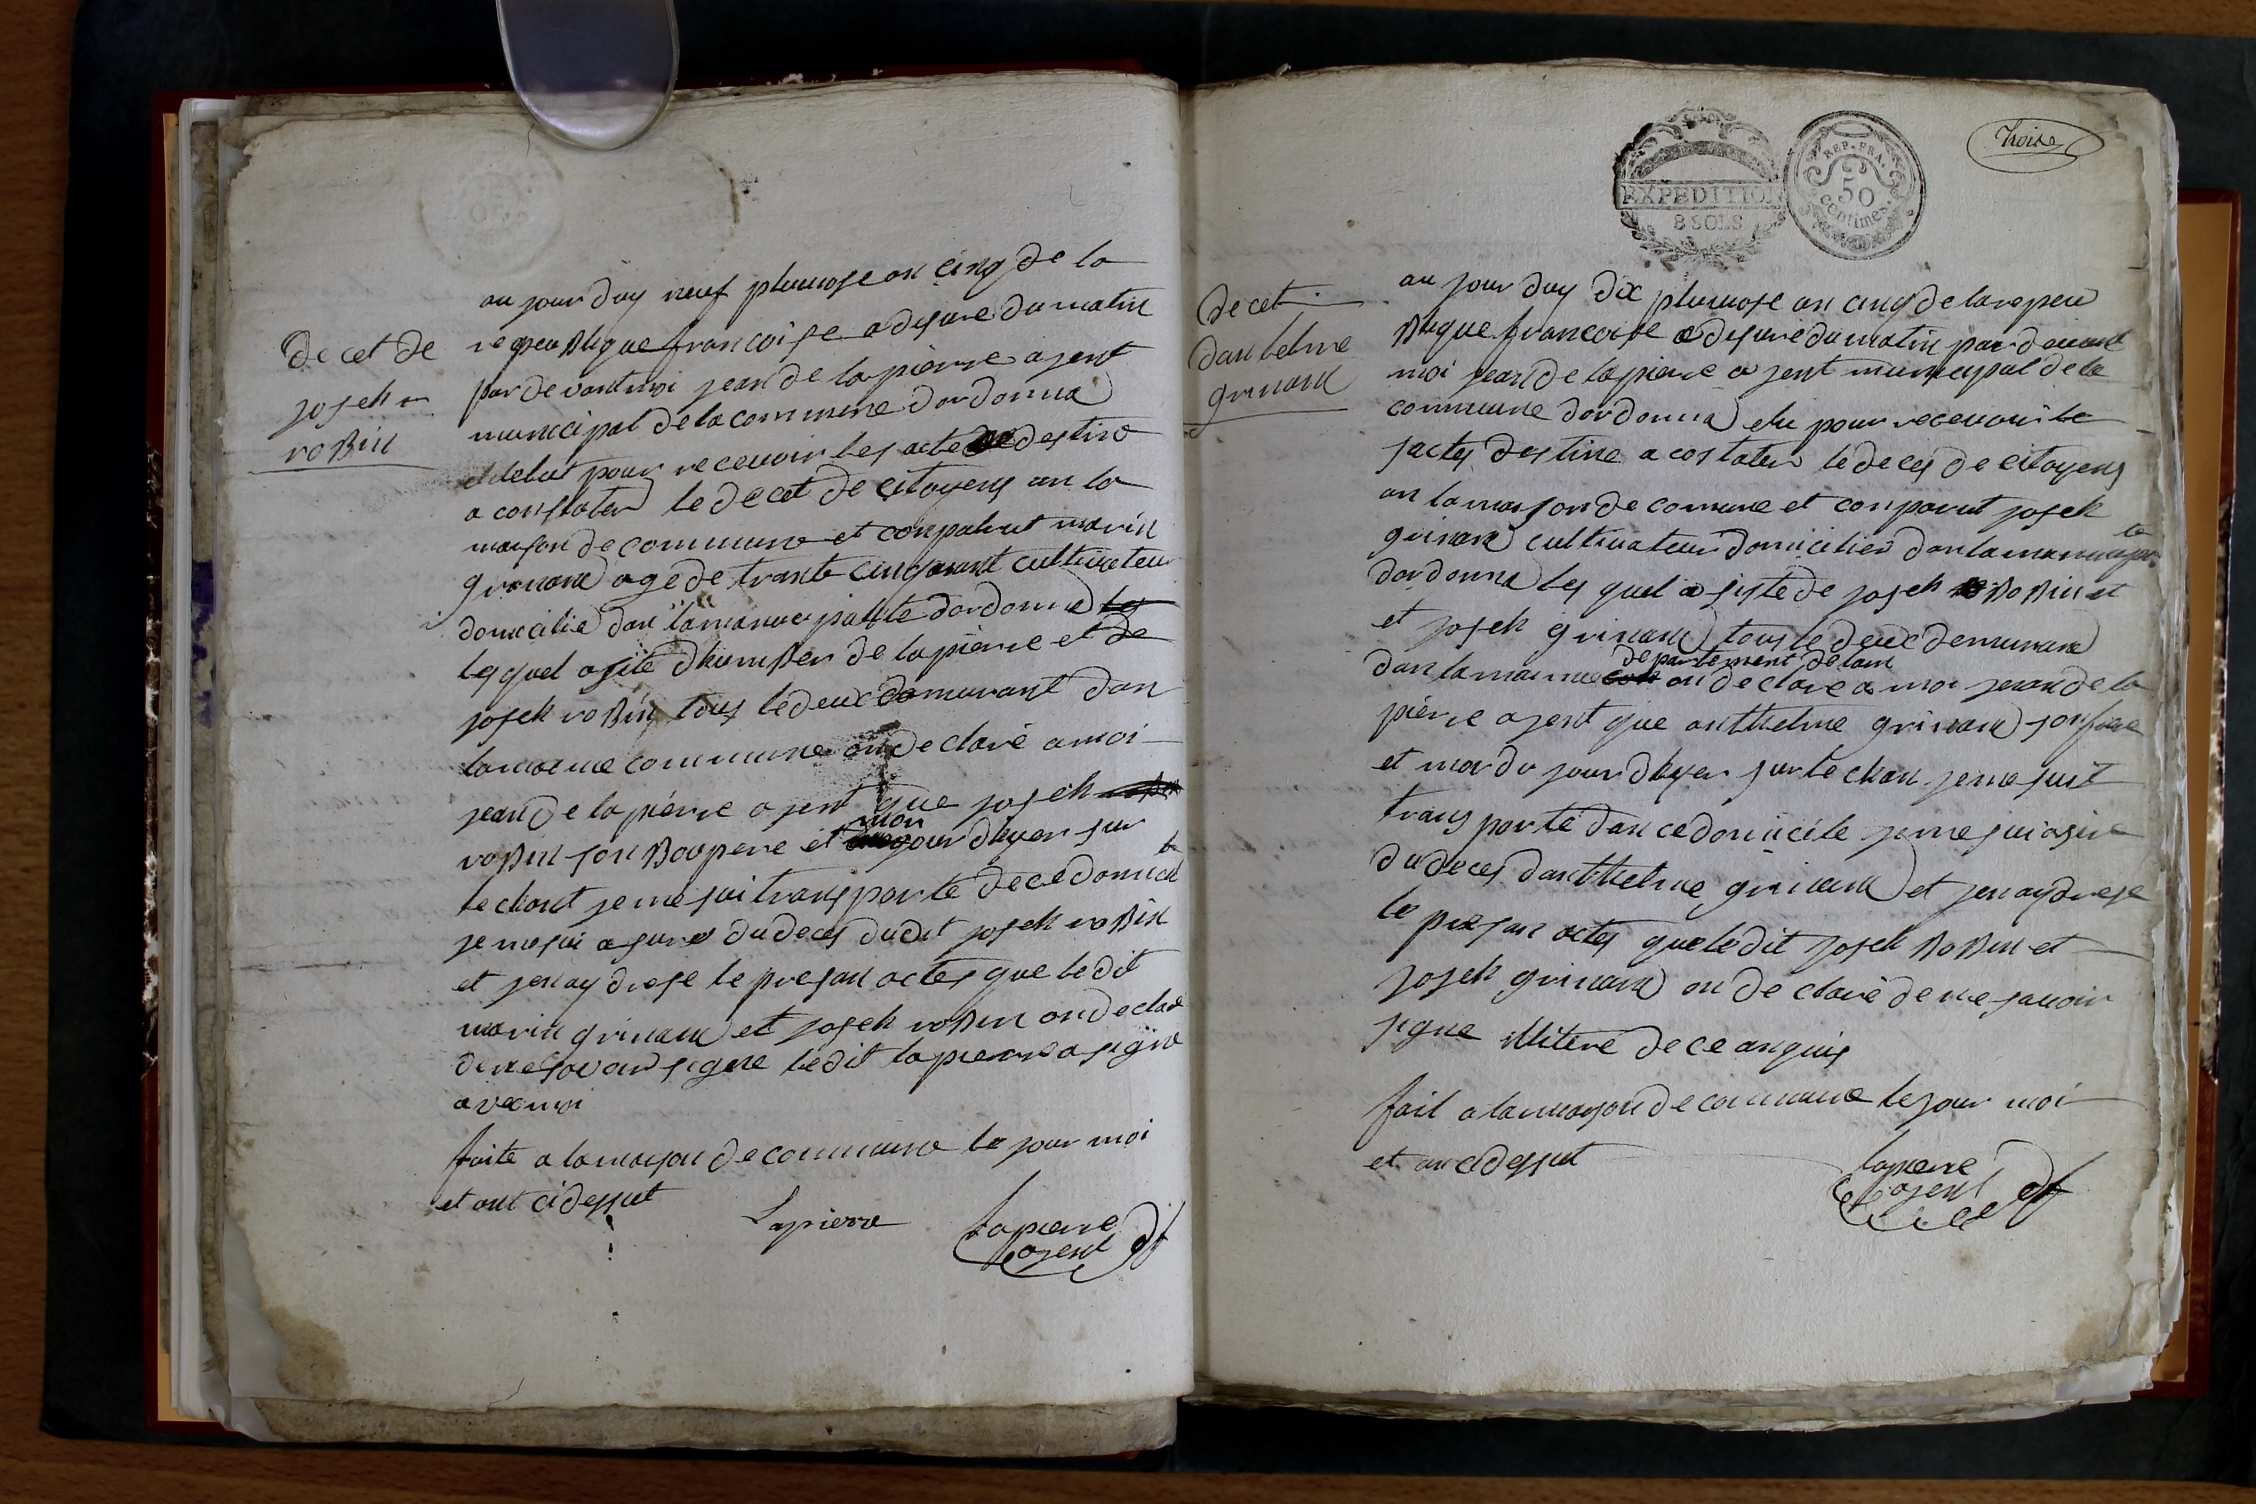 de cet de
josehr
robin
au jour duy neuf pluviose an cinq de la
repeublique francoise a dis ure du matin
par devant moi jean de lapierre ajent
municipal de la commune dordonna
elut pour recevoir les acte destine
a constater le decet de citoyens an la
maison de commune et conparut marin
grinand age de trante cinq anant cultivateur
domicilie dan la manucipalite dordonna
lesquel asite dhumber de lapierre et de
joseh robin tous le deux demurant dan
la maeme commune on declare a moi
jean de lapierre ajent que joseh
robin son boupere et mor jour dhyer sur
le chant je me sui transporte de ce domicile
je me sui asure du deces dudit joseh robin
et jen ay drese le presan actes que le dit
marin grinand et joseh robin on declare
de ne savoir signe le dit lapierre a signe
avec moi
faite a la maison de commune le jour moi
et ant ci dessut
Lapierre
lapierre
ajent
Troise
EXPEDITION
8 SOLS
REP. FRA.
50
centimes
de cet
dantelme
grinand
au jour duy dix pluviose an cinq de la repeu
blique francoise a dis ure du matin par devant
moi jean de lapierre ajent municipal de la
commune dordonna elu pour recevoir le
sactes destine a costater le deces de citoyens
an la maison de comune et conparut joseh
grinand cultivateur domicilier dan la manucipalite
dordonna lesquel asiste de joseh robin et
et joseh grinand tous le deux demurand
departement de lain
dan la maeme on declare a moi jean de la
pierre ajent que anthelme grinand son frere
et mor du jour dhyer sur le chan je me suit
transporte dan ce domicile je me sui asure
du deces danthelme grinand et jen ay drese
le presan actes que le dit joseh robin et
joseh grinand on declare de ne savoir
signe illitere de ce anquis
fait a la maison de commune le jour moi
et an ci dessut
lapierre
ajent